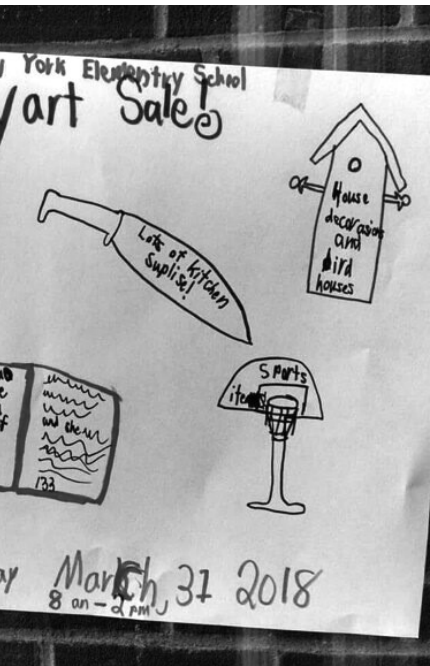 York Elementry School
art Sale!
Lots of kitchen
Suplise!
House
decorasions
and
bird
houses
Sports
items
and she
133
March, 31 2018
8 am - 2 pm